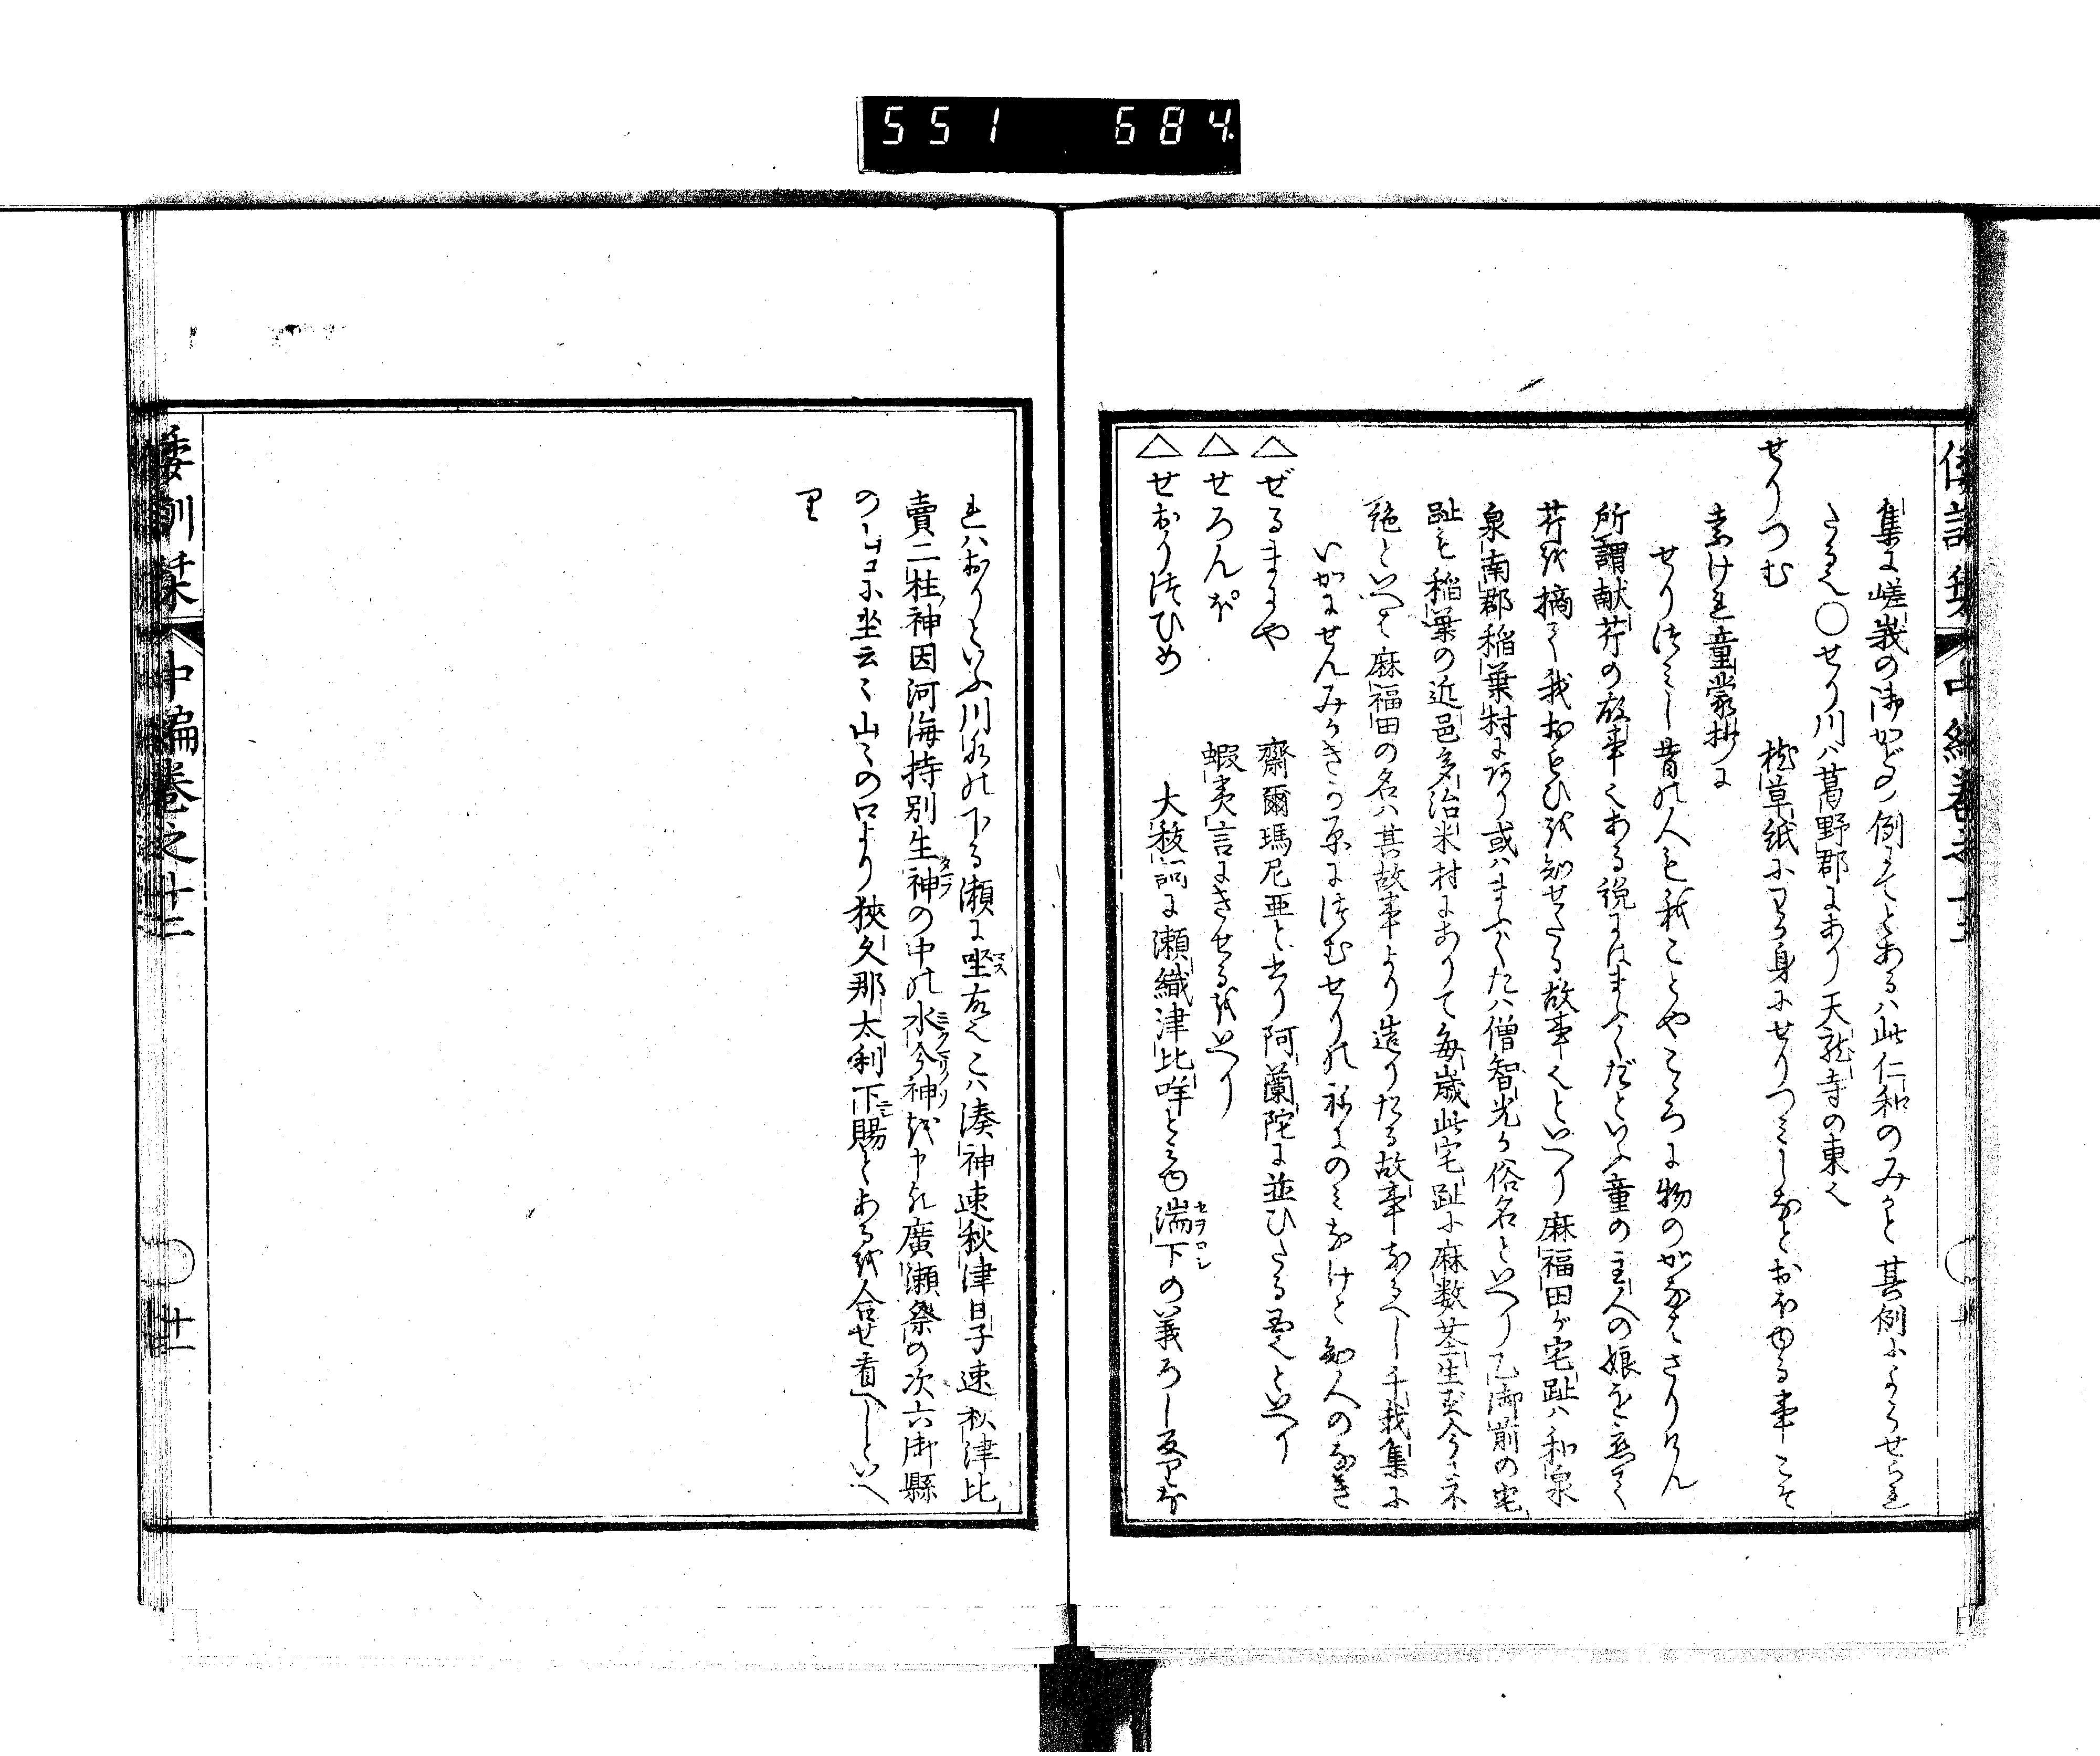 551 684
集に嵯峨の御かどの例にてとあるは此仁和のみかと其例によらせられ
たる也〇せり川ハ葛野郡にあり天龍寺の東也
せりつむ 枕草紙にわか身にせりつミしなとおほゆる事こそ
なけれ童蒙抄に
せりつミし昔の人も我ことやこゝろに物のかなはさりけん
所謂献芹の故事也ある説にはまふくだといふ童の主人の娘を恋て
芹を摘て我おもひを知せたる故事也といへり麻福田が宅趾ハ和泉
泉南郡稲葉村にあり或ハまふくたハ僧智光か俗名といへり乙御前の宅
趾も稲葉の近邑多治米村にありて毎歳此宅趾に麻数茎生す今に不
絶といへは麻福田の名ハ其故事より造りたる故事なるへし千載集に
いかにせんみかきか原につむせりのねにのミなけと知人のなき
△ぜるまにや 齋爾瑪尼亜と書り阿蘭陀に並ひたる国也といへり
△せろんぽ 蝦夷言にきせるをいへり
△せおりつひめ 大祓詞に瀬織津比咩とミゆ湍下の義ろし反りな
セヲロシ
れハおりといふ川水の下る瀬に坐故也こハ湊神速秋津日子速秋津比
マス
賣二柱神因河海持別生神の中の水分神を申す廣瀬祭の次六御縣
の山口に坐云々山々の口より狭久那太利下賜とある を合せ看へしといへ
り
倭訓栞 中編巻之十二 〇 廿一